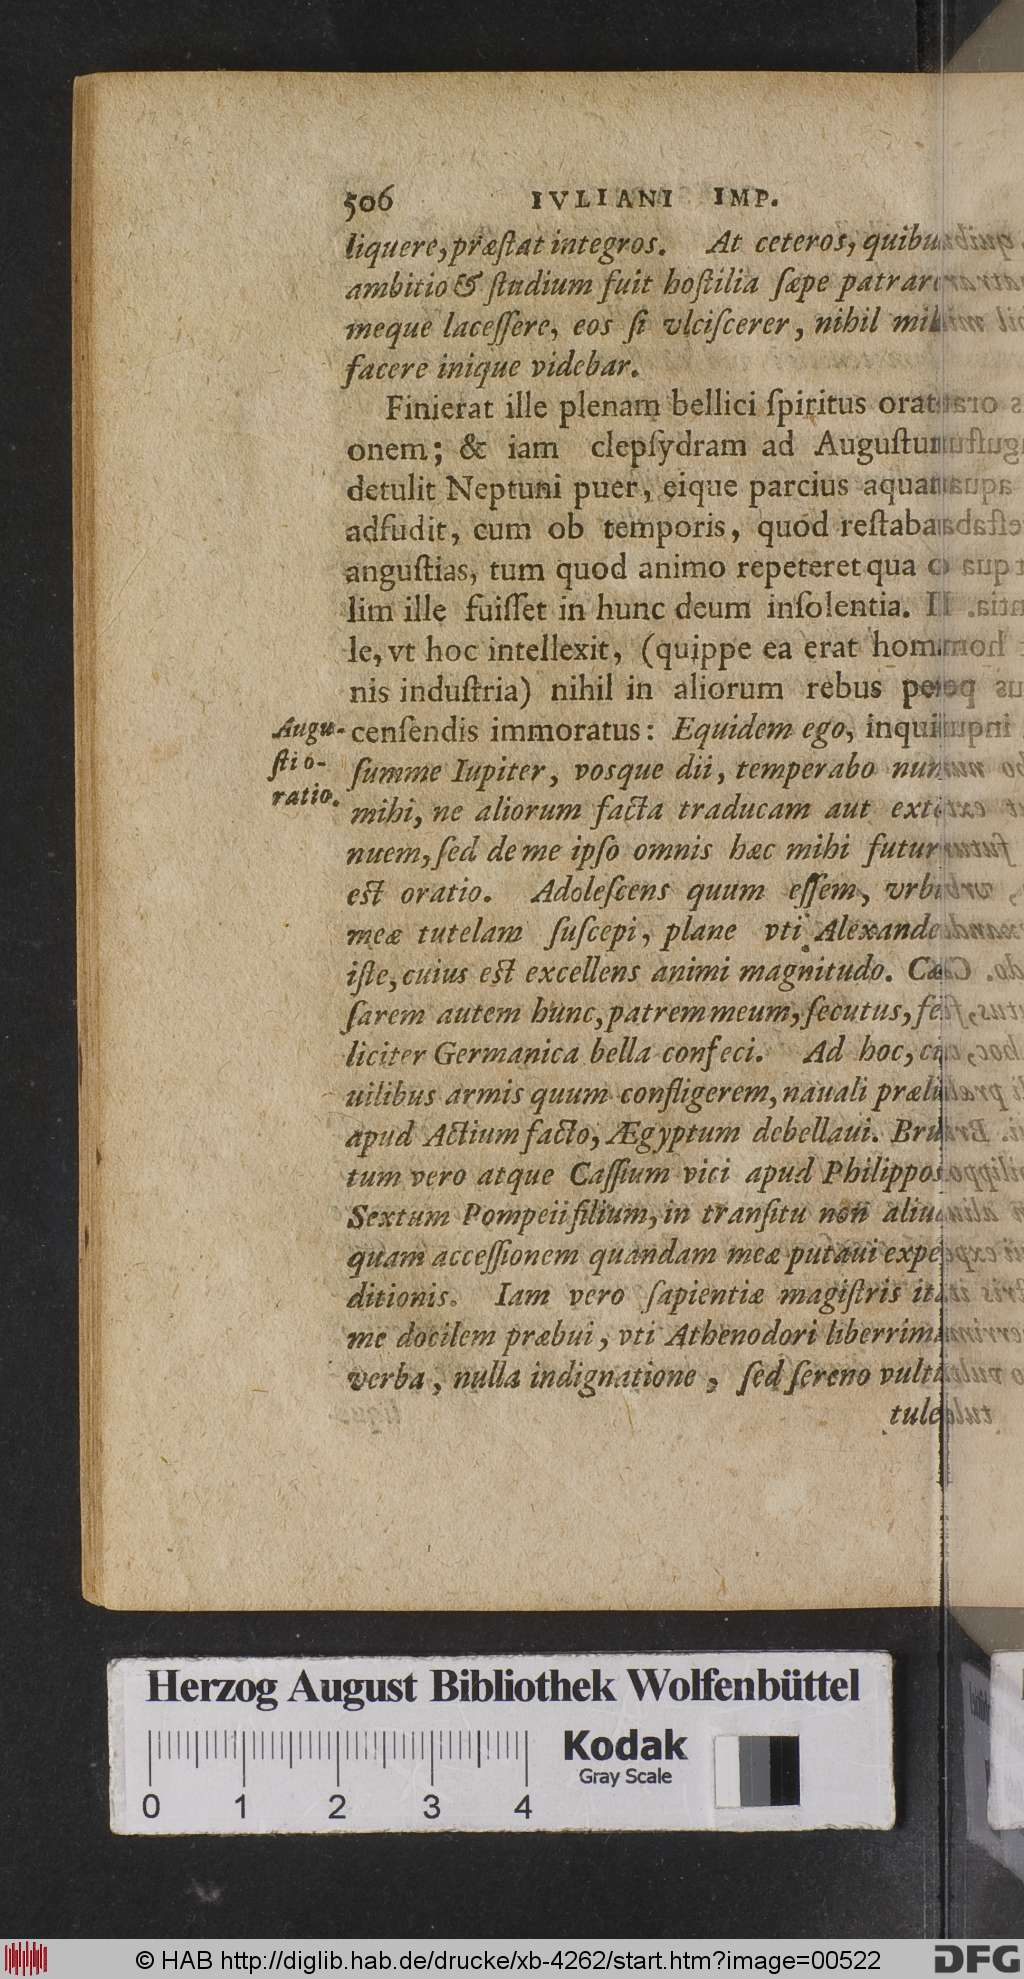 506 IVLIANI IMP.
liquere, præſtat integros. At ceteros, quibus
ambitio & ſtudium fuit hoſtilia ſæpe patrare
meque laceſſere, eos ſi vlciſcerer, nihil mihi
facere inique videbar.
Finierat ille plenam bellici ſpiritus orati-
onem; & iam clepſydram ad Auguſtum
detulit Neptuni puer, eique parcius aquam
adfudit, cum ob temporis, quod reſtabat
anguſtias, tum quod animo repeteret qua o-
lim ille fuiſſet in hunc deum inſolentia. Il-
le, vt hoc intellexit, (quippe ea erat homi-
nis induſtria) nihil in aliorum rebus per-
Augu-
ſti o-
ratio.
cenſendis immoratus: Equidem ego, inquit,
ſumme Iupiter, vosque dii, temperabo nunc
mihi, ne aliorum facta traducam aut exte-
nuem, ſed de me ipſo omnis hæc mihi futura
est oratio. Adoleſcens quum eſſem, vrbis
meæ tutelam ſuſcepi, plane vti Alexander
iſte, cuius est excellens animi magnitudo. Cæ-
ſarem autem hunc, patrem meum, ſecutus, fe-
liciter Germanica bella confeci. Ad hoc, ci-
uilibus armis quum confligerem, nauali prælio
apud Actium facto, Ægyptum debellaui. Bru-
tum vero atque Caſſium vici apud Philippos.
Sextum Pompeii filium, in tranſitu non aliud
quam acceſſionem quandam meæ putaui expe-
ditionis. Iam vero ſapientiæ magiſtris ita
me docilem præbui, vti Athenodori liberrima
verba, nulla indignatione, ſed ſereno vultu
tule-
Herzog August Bibliothek Wolfenbüttel
Kodak
Gray Scale
0 1 2 3 4
© HAB http://diglib.hab.de/drucke/xb-4262/start.htm?image=00522
DFG